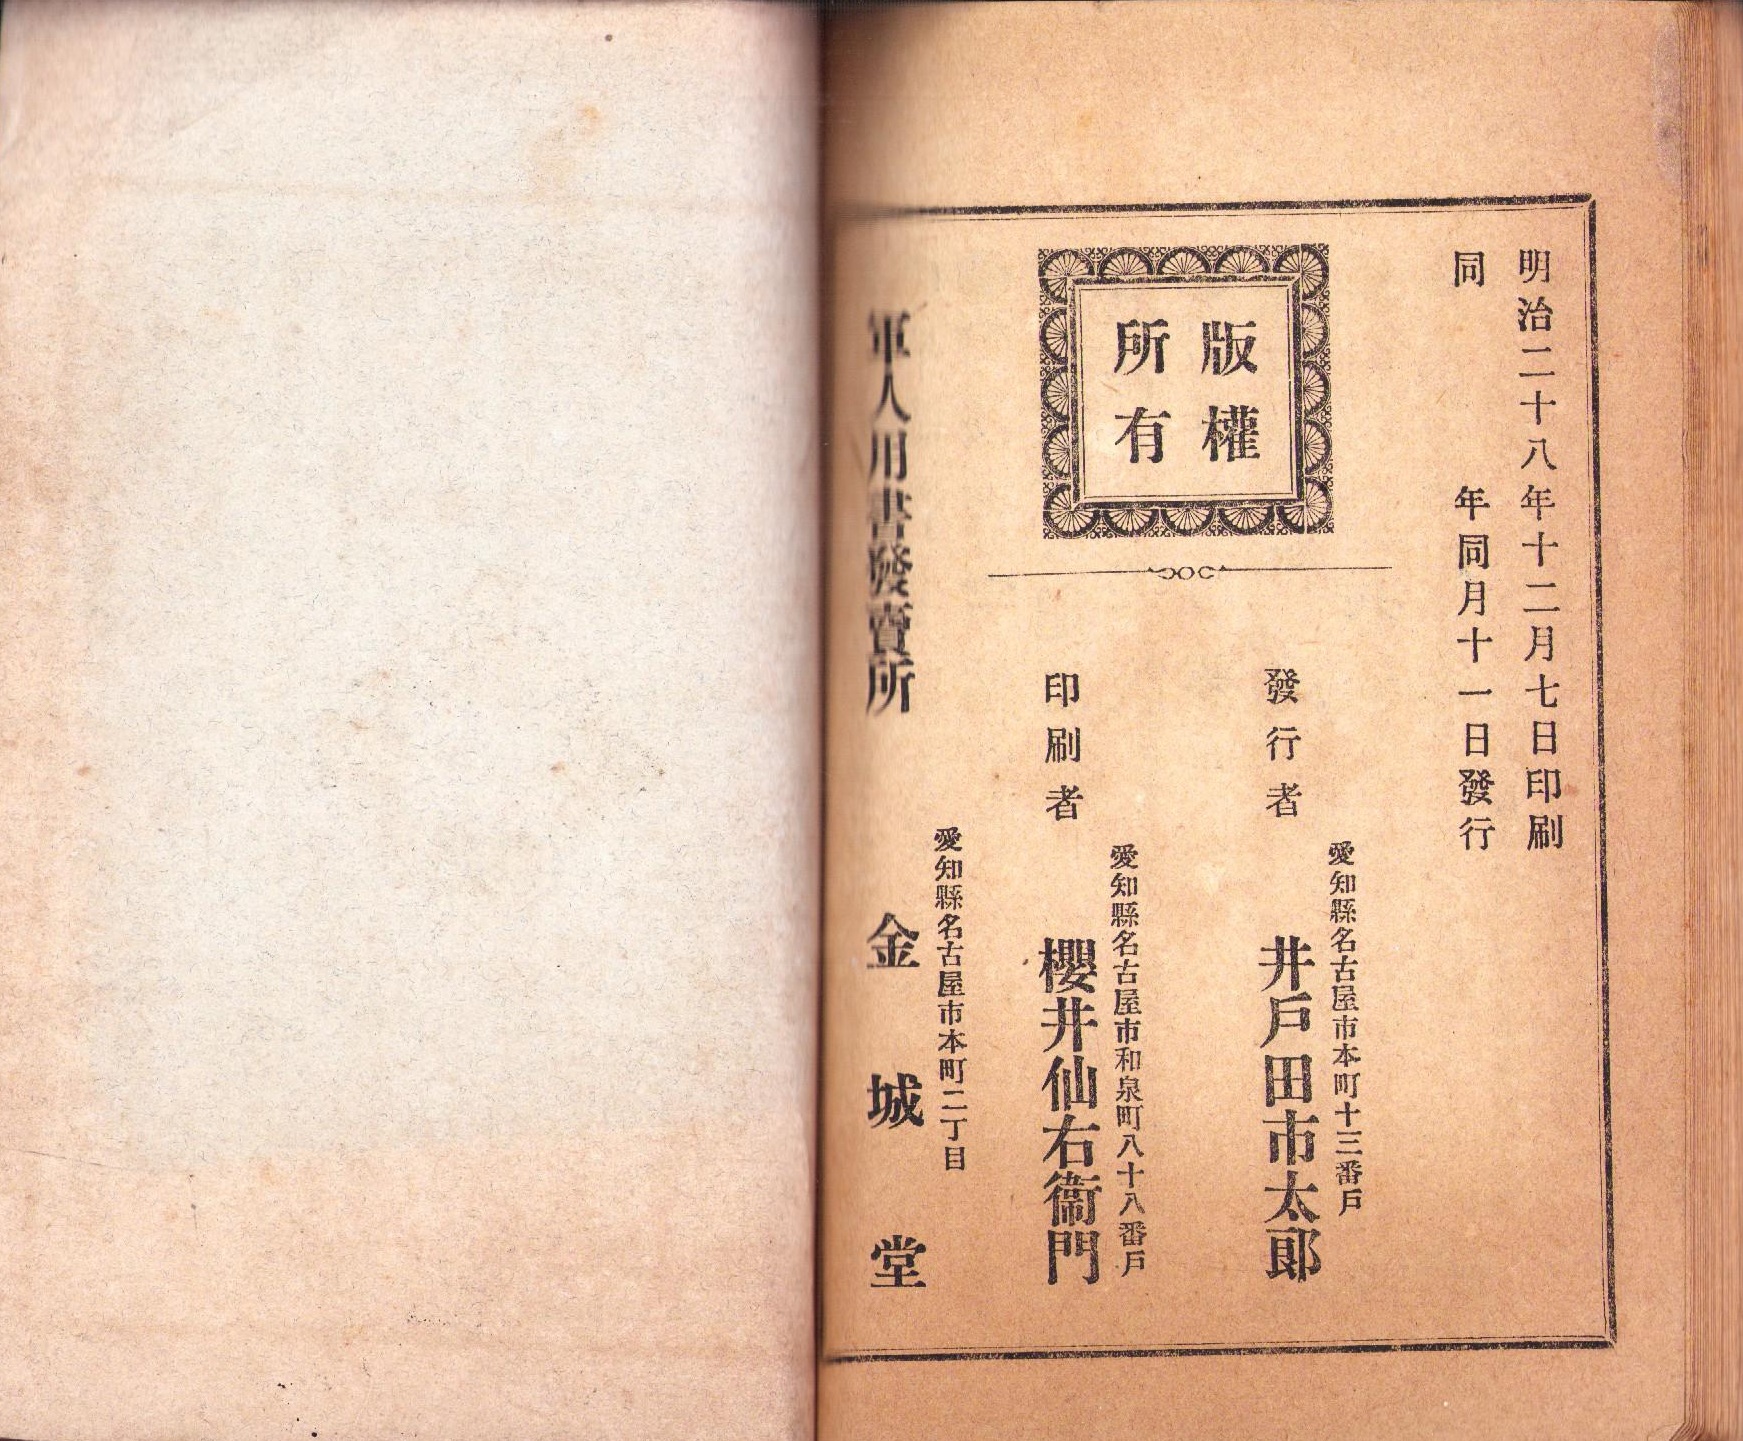 明治二十八年十二月七日印刷
同年同月十一日發行
版權
所有
發行者
愛知縣名古屋市本町十三番戶
井戶田市太郞
印刷者
愛知縣名古屋市和泉町八十八番戶
櫻井仙右衞門
愛知縣名古屋市本町二丁目
軍人用書發賣所
金城堂